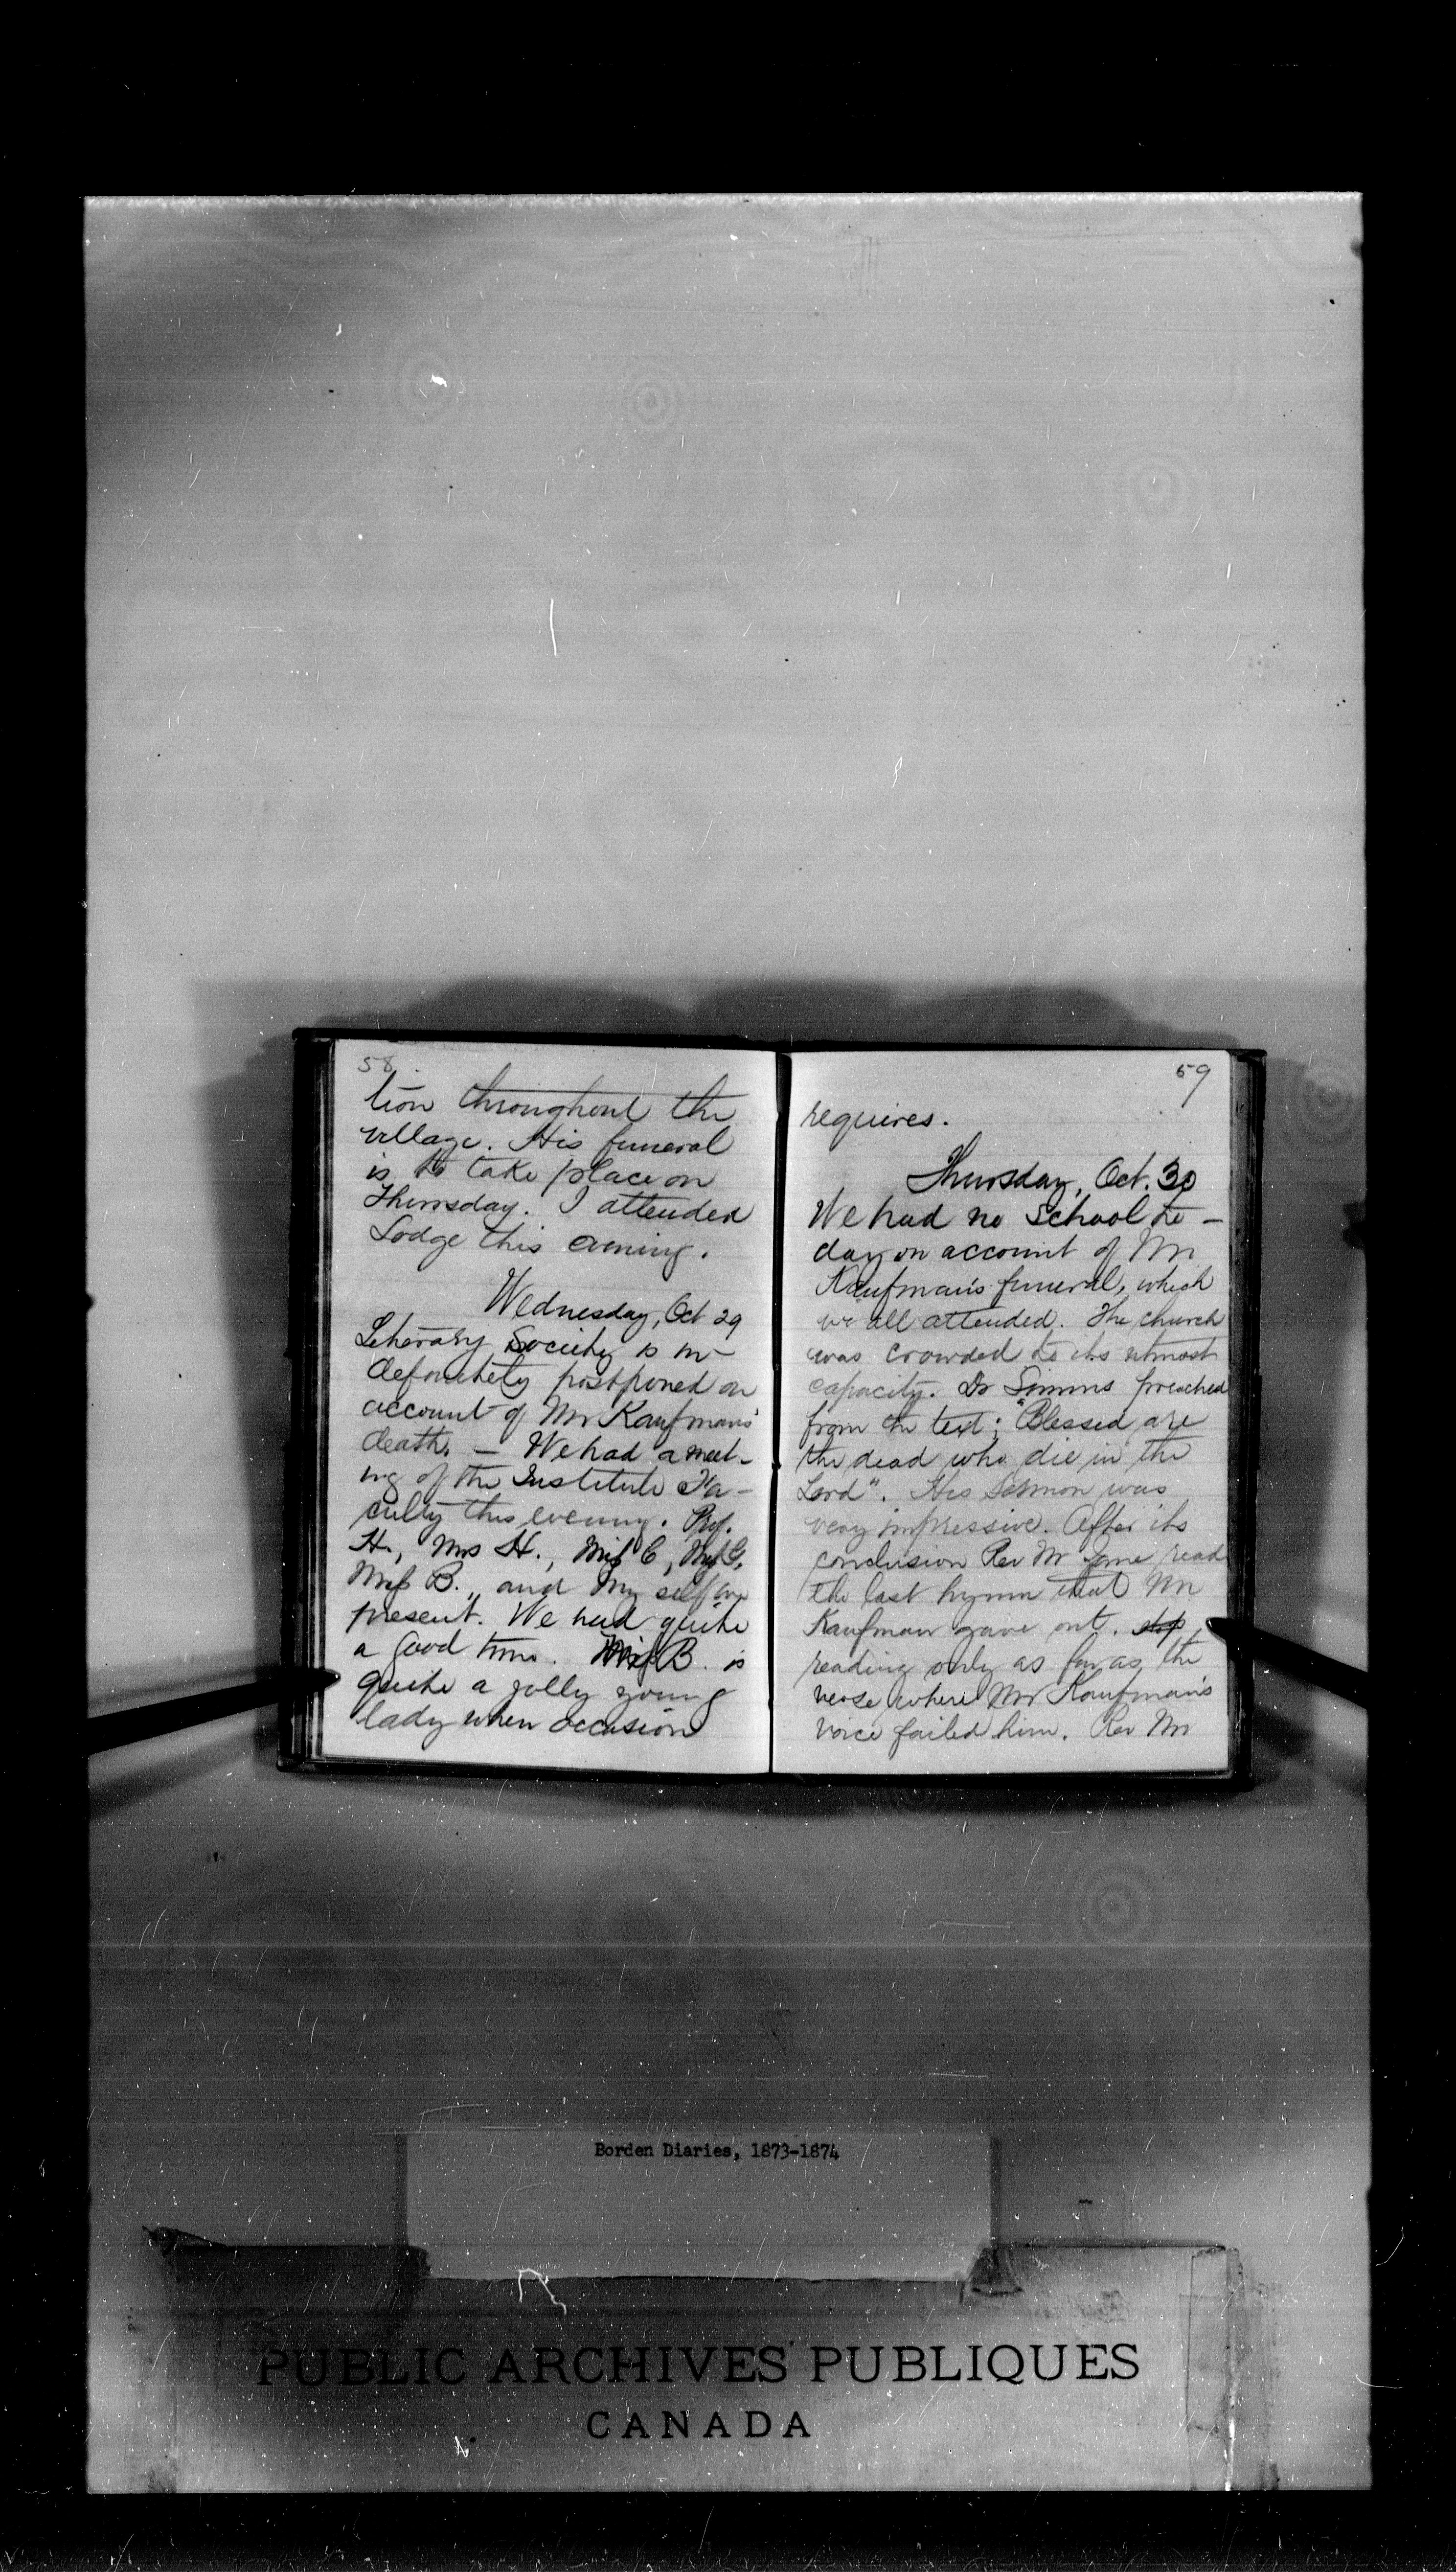 58.
tion throughout the
village. His funeral
is to take place on
Thursday. I attended
Lodge this evening.
Wednesday, Oct 29
Literary Society is in-
definitely postponed on
account of Mr Kaufman's
death. — We had a meet-
ing of the Institute Fa-
culty this evening. Prof.
H., Mrs H., Miss C, Miss G,
Miss B., and my self were
present. We had quite
a good time. Miss B. is
quite a jolly young
lady when occasion
59
requires.
Thursday, Oct. 30
We had no School to-
day on account of Mr
Kaufman's funeral, which
we all attended. The church
was crowded to its utmost
capacity. Dr Simms preached
from the text; "Blessed are
the dead who die in the
Lord". His sermon was
very impressive. After its
conclusion Rev Mr read
the last hymn that Mr
Kaufman gave out.
reading only as far as the
verse where Mr Kaufman's
voice failed him. Rev Mr
Borden Diaries, 1873-1874
PUBLIC ARCHIVES PUBLIQUES
CANADA